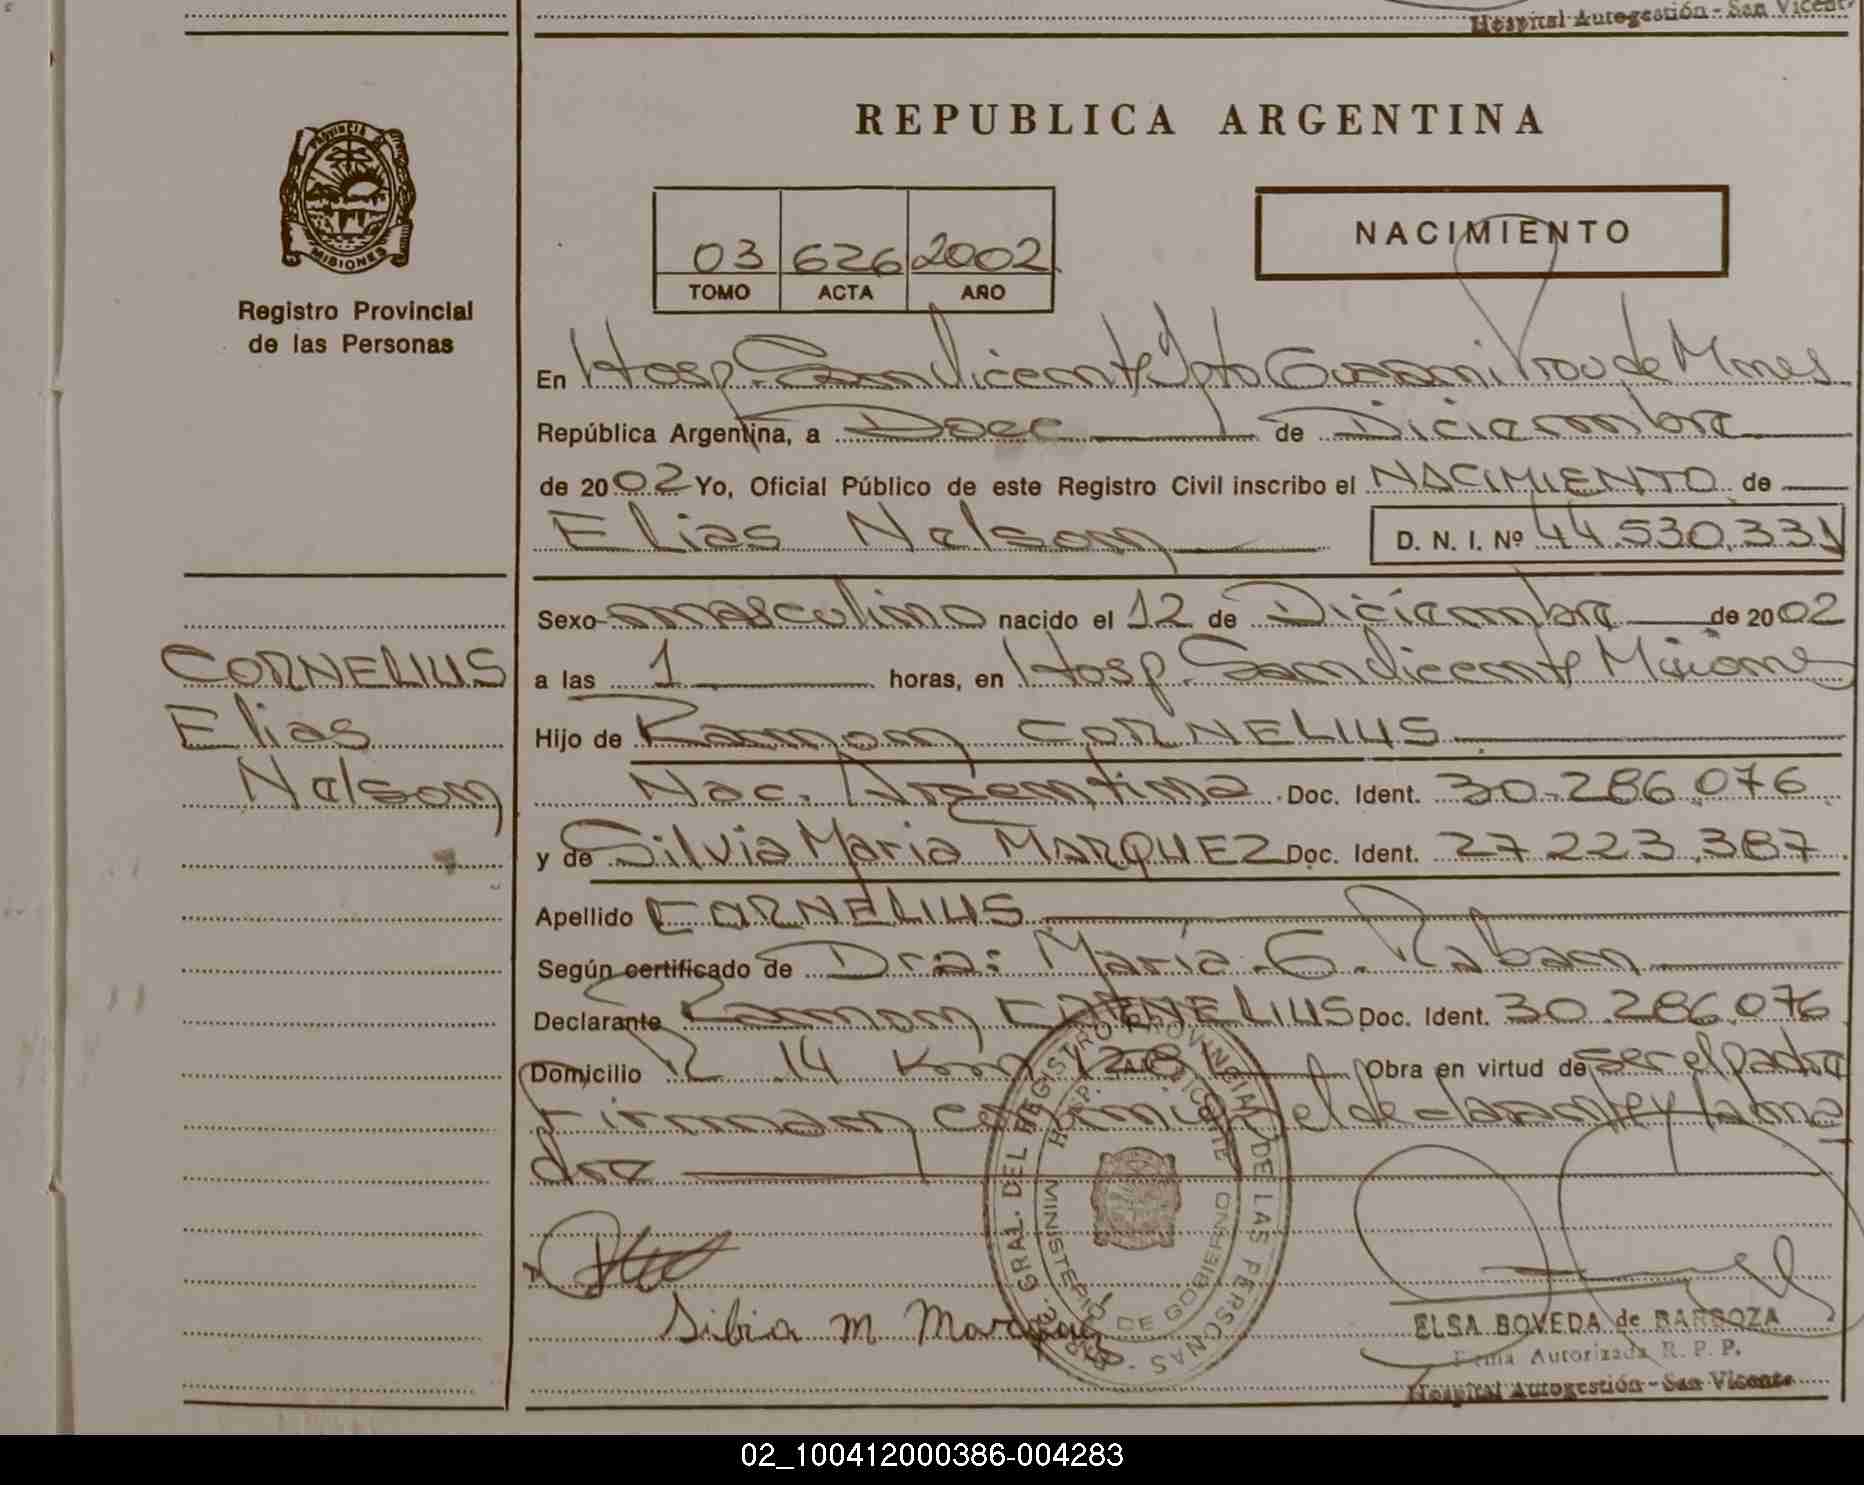 Hospital Autogestión - San Vicente
REPUBLICA ARGENTINA
PROVINCIA DE
MISIONES
Registro Provincial
de las Personas
03 626 2002
TOMO ACTA AÑO
NACIMIENTO
En Hosp. San Vicente Dpto Guarani Prov de Mnes
República Argentina, a Doce de Diciembre
de 2002 Yo, Oficial Público de este Registro Civil inscribo el NACIMIENTO de
Elias Nelson D. N. I. Nº 44.530.331
CORNELIUS
Elias
Nelson
Sexo masculino nacido el 12 de Diciembre de 2002
a las 1 horas, en Hosp. San Vicente Misiones
Hijo de Ramon CORNELIUS
Nac. Argentina Doc. Ident. 30.286.076
y de Silvia Maria MARQUEZ Doc. Ident. 27.223.387
Apellido CORNELIUS
Según certificado de Dra: María G. Raban
Declarante Ramon CORNELIUS Doc. Ident. 30.286.076
Domicilio R 14 Km 1281 Obra en virtud de ser el padre
Firman conmigo el declarante y la ma
dre
GRAL. DEL REGISTRO PROVINCIAL DE LAS PERSONAS
HOSP. SAN VICENTE
MINISTERIO DE GOBIERNO
Silvia m Marquez
ELSA BOVEDA de BARBOZA
Firma Autorizada R. P. P.
Hospital Autogestión - San Vicente
02_100412000386-004283